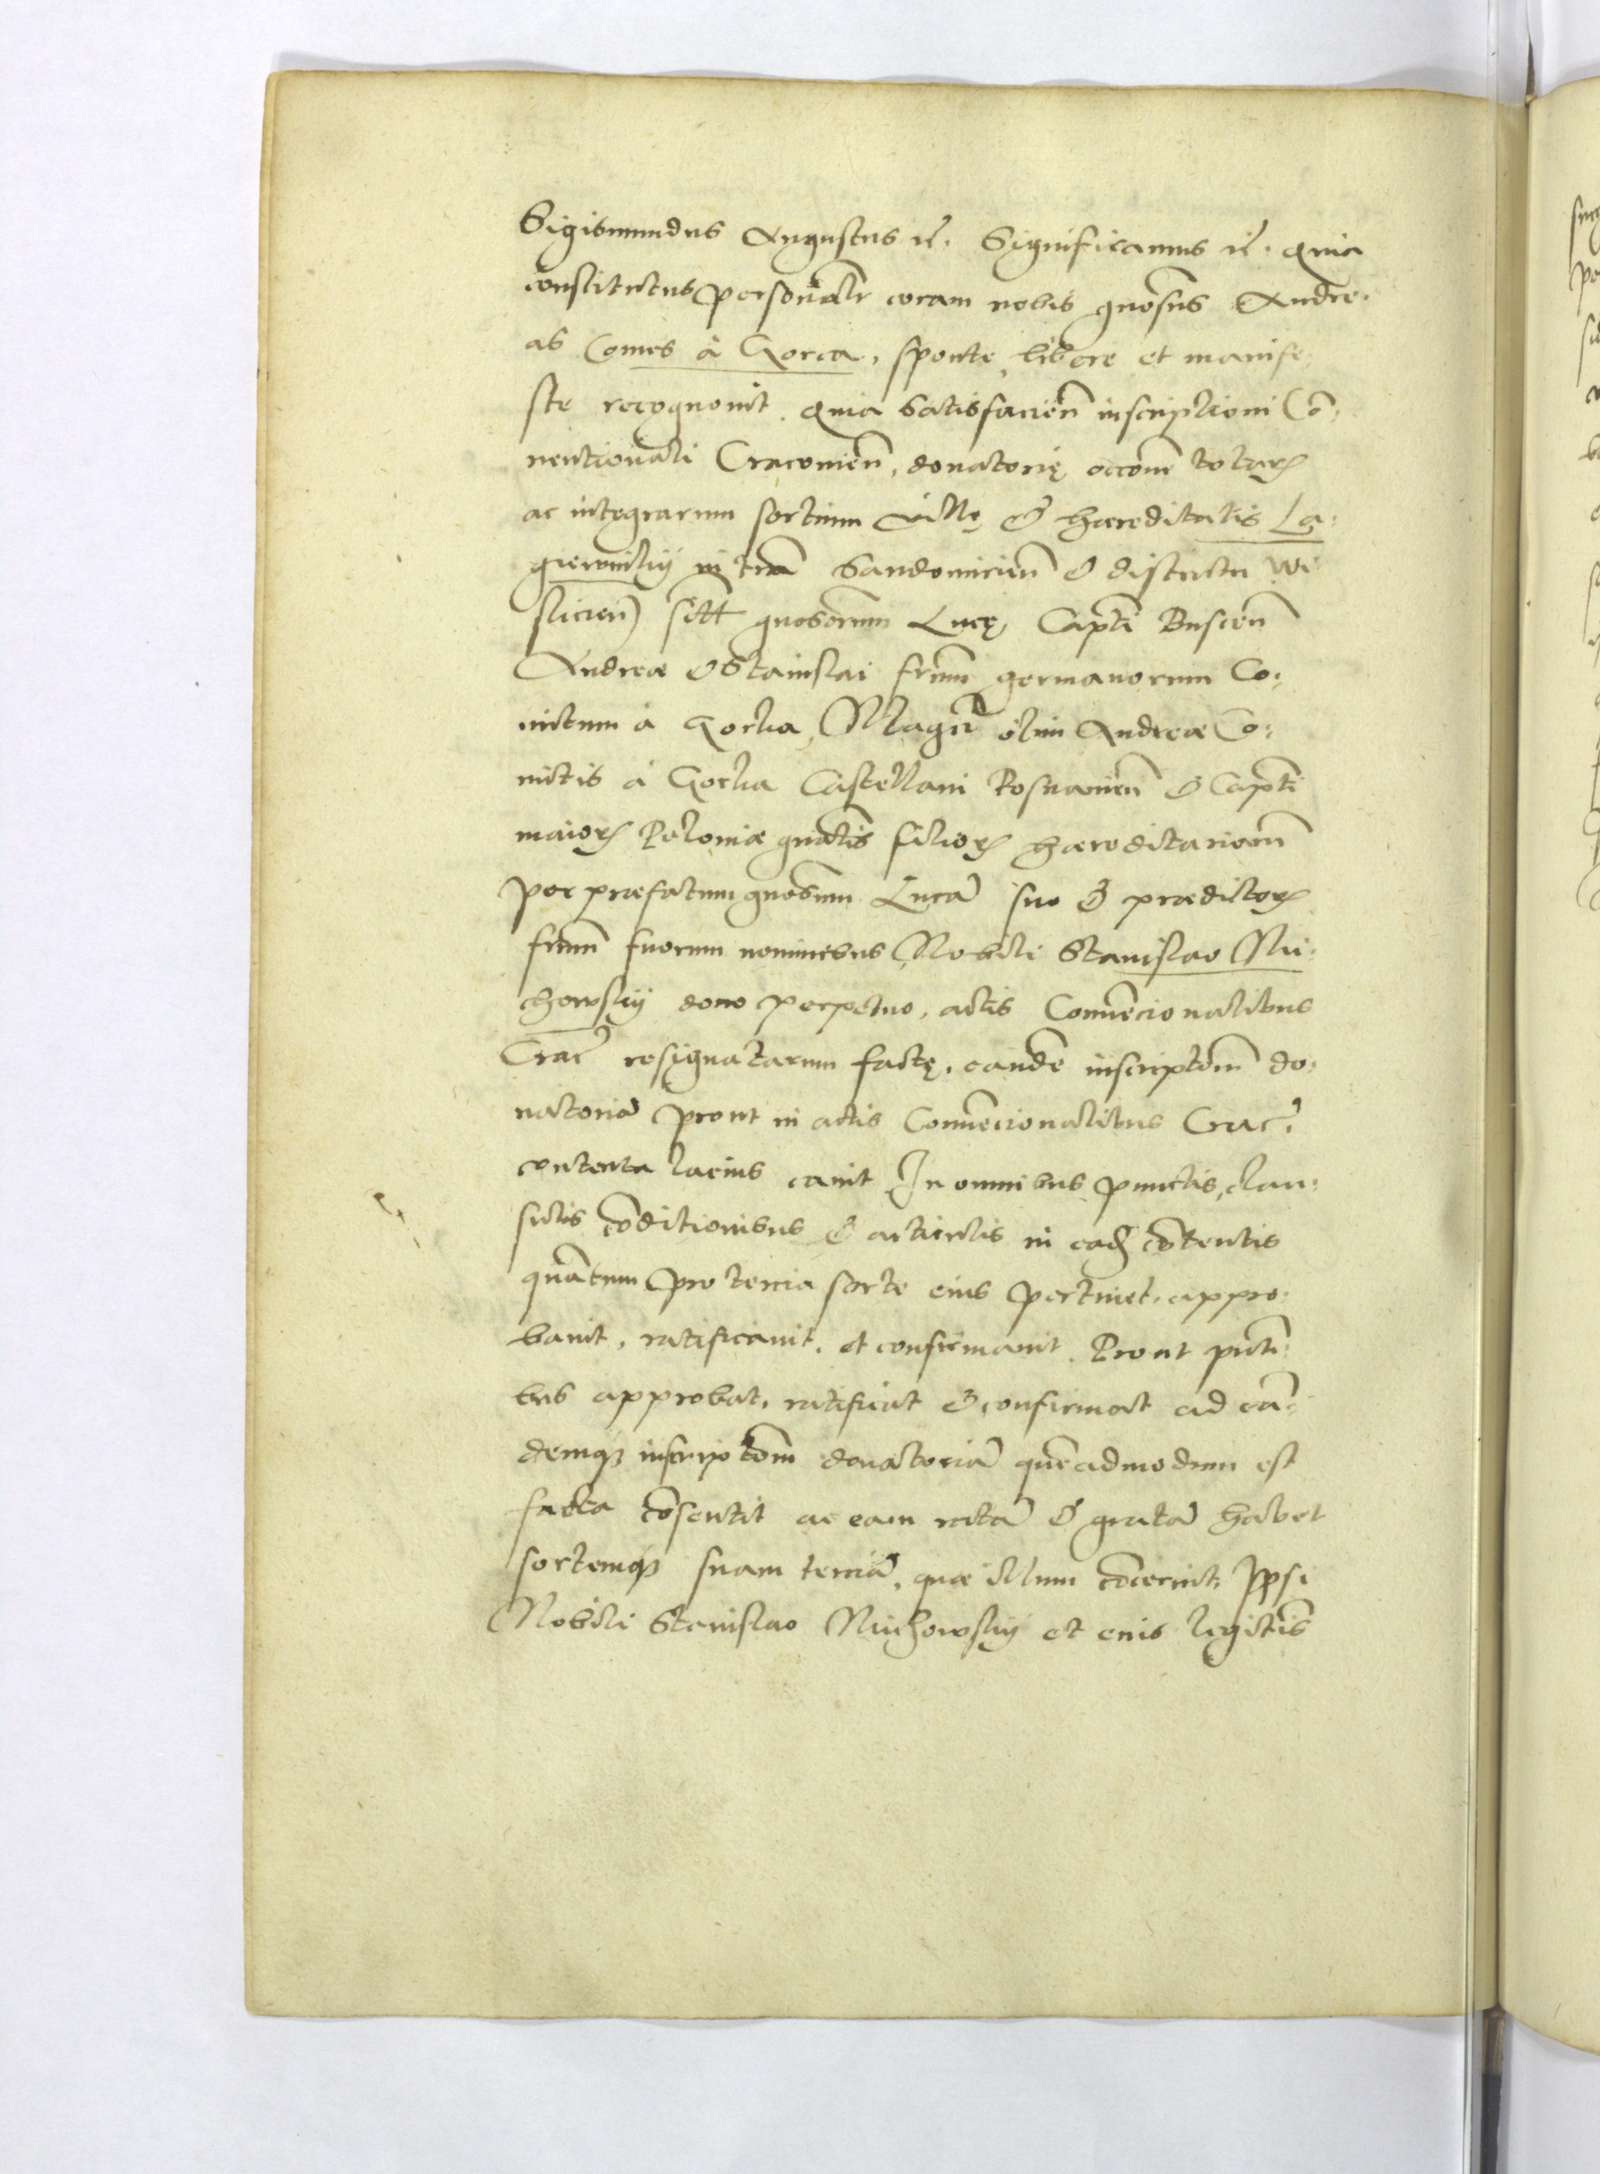 Sigismundus Augustus etc. Significamus etc. Quia
constitutus personalr coram nobis gnosus Andre-
as Comes à Gorca, sponte, libere et manife-
ste recognovit. Quia satisfacien inscriptioni Co-
ventionali Cracovien, donatorię occone totarum
ac integrarum sortium villę & hæreditatis La-
giewniky in tra Sandomirien & districtu Wi-
slicien sitt gnosorum Lucę, Captei Buscen
Andreæ & Stanislai frum germanorum Co-
mitum à Gorka, Magci olim Andreæ Co-
mitis à Gorka Castellani Posnanien & Captei
maiorum Poloniæ gnatis filiorum hæreditariorum
per præfatum gnosum Lucã suo & prædictorum
frum suorum nominibus Nobili Stanislao Mi-
chowsky dono perpetuo, actis Convencionalibus
Crac resignatarum factę, eande inscriptom do-
natoriã prout in actis Convencionalibus Crac
contenta lacius canit In omnibus punctis, clau-
sulis coditionibus & articulis in eadem cotentis
quãtum pro tercia sorte eius pertinet, appro-
bavit, ratificavit, et confirmavit. Prout pnti-
bus approbat, ratificat & confirmat ad eã-
demque inscriptom donatoriã quēadmodum est
facta cosentit ac eam ratã & gratã habet
sortemque suam terciã, quæ illum cocernit Ipsi
Nobili Stanislao Michowsky et eius legitis